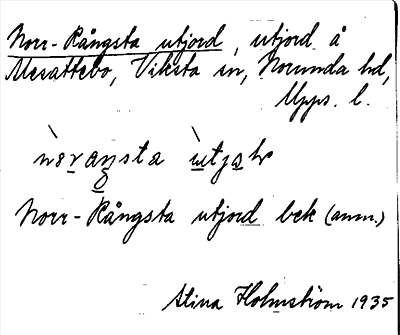 Norr-Rångsta utjord, utjord å
Mesattebo, Viksta sn, Norunda hd,
Upps. l.
Norr-Rångsta utjord bek (anm.)
Stina Holmström 1935